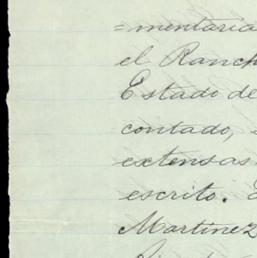 =mentaria
el Ranch
Estado de
contado,
extensas
escrito.
Martinez